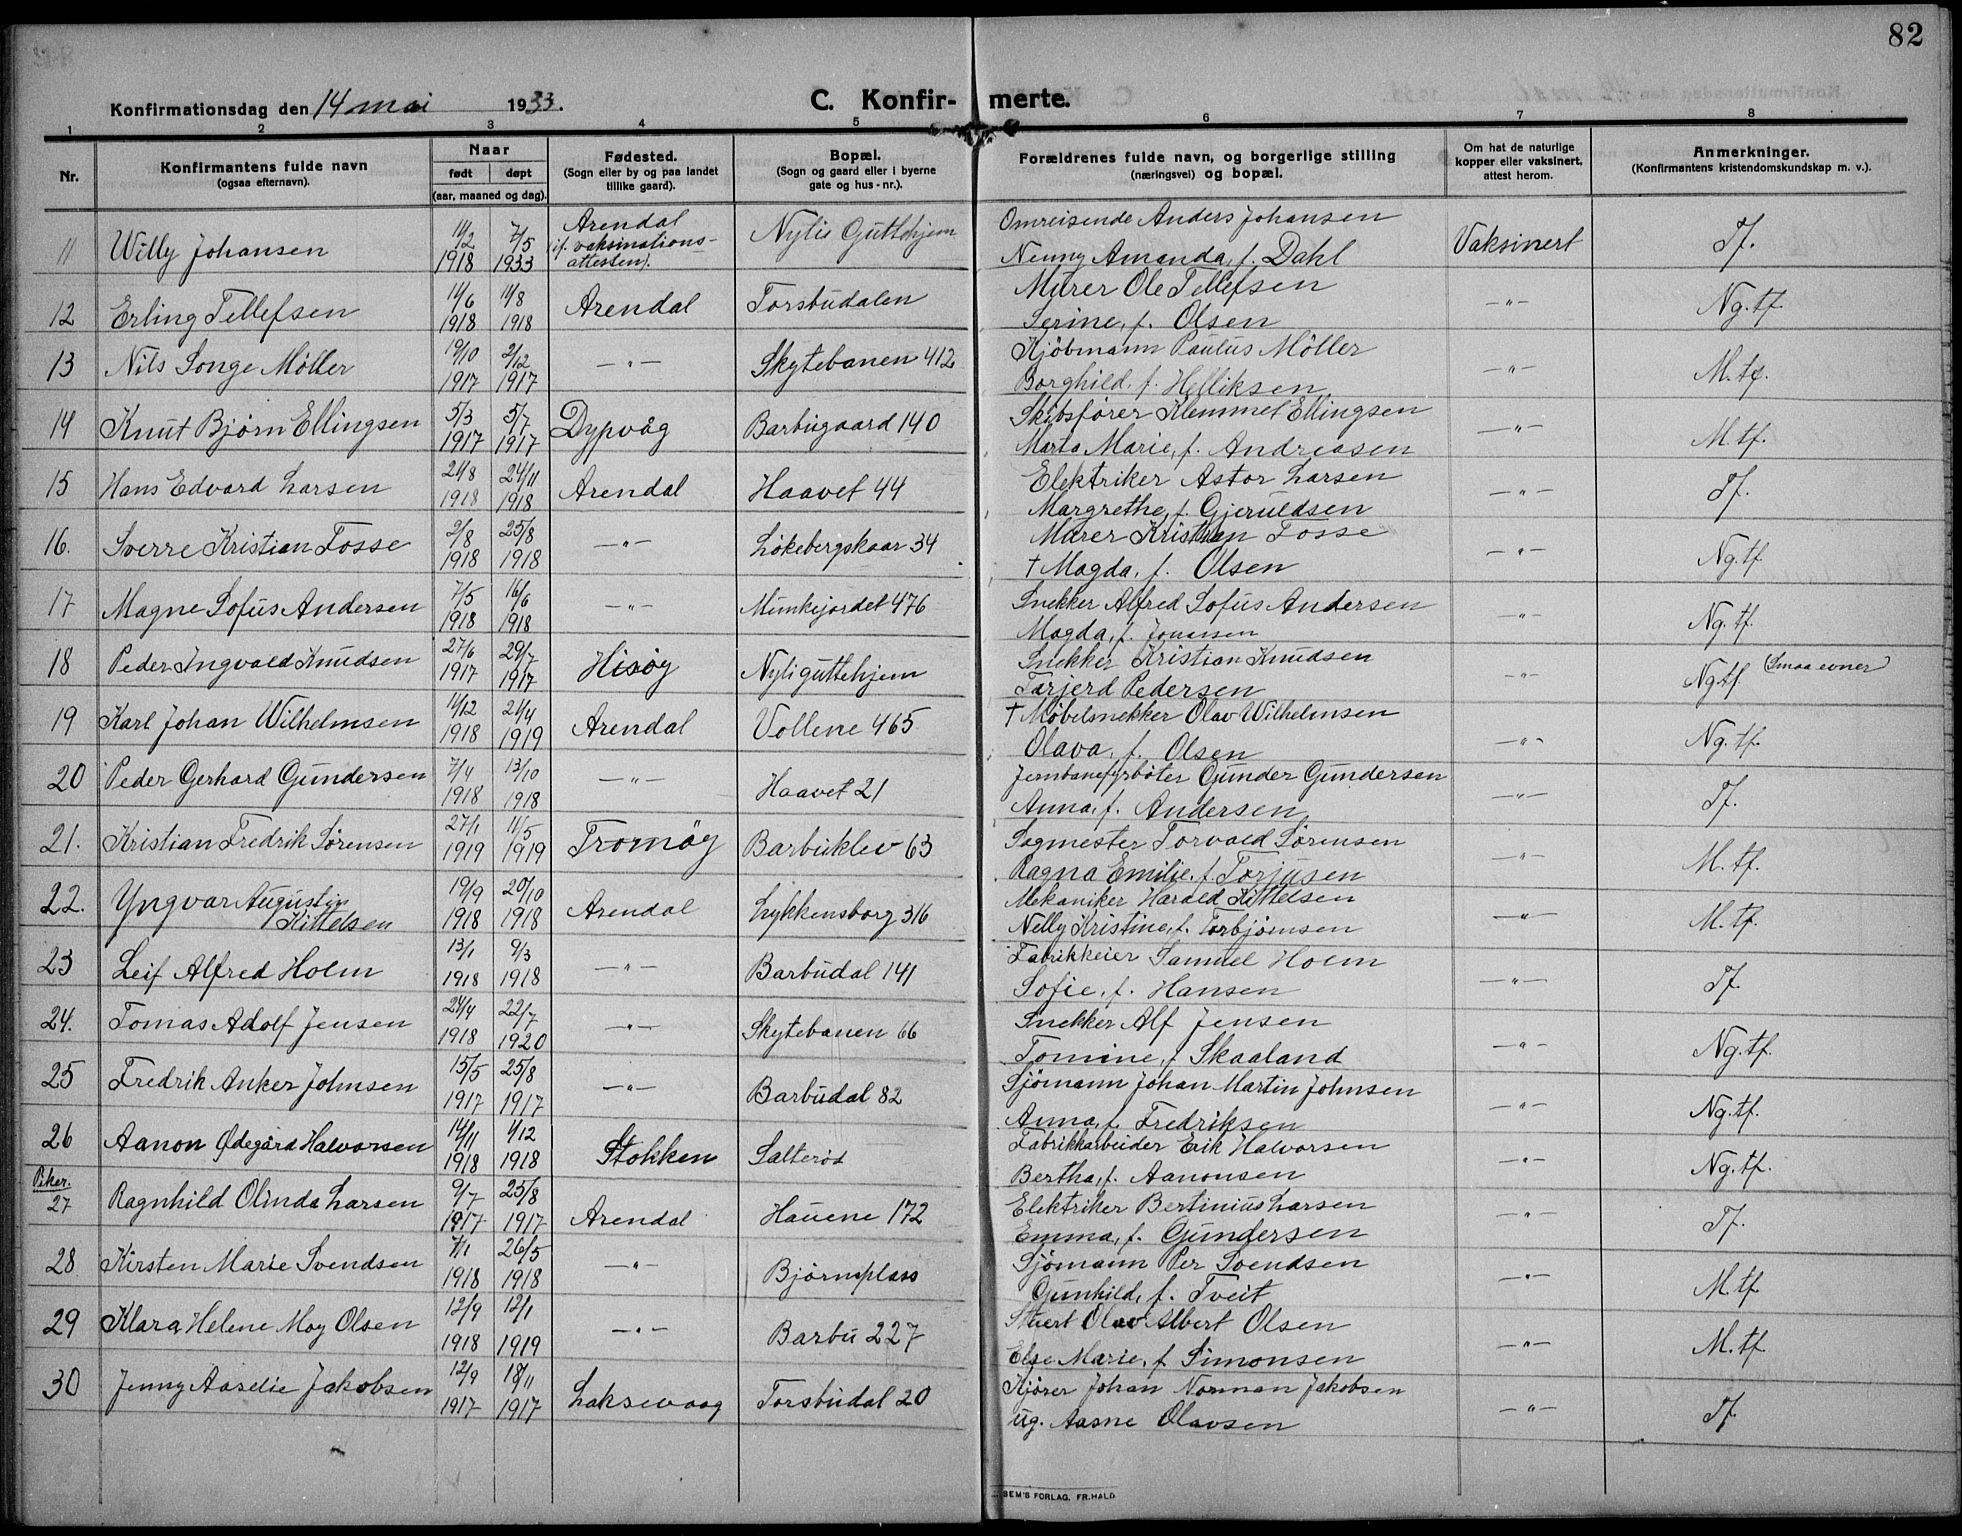 82
Konfirmationsdag den 14 mai 1933.
C. Konfir- merte.
1 2 3 4 5 6 7 8
Nr.
Konfirmantens fulde navn
(ogsaa efternavn).
Naar
født døpt
(aar, maaned og dag).
Fødested.
(Sogn eller by og paa landet
tillike gaard).
Bopæl.
(Sogn og gaard eller i byerne
gate og hus-nr.).
Forældrenes fulde navn, og borgerlige stilling
(næringsvei) og bopæl.
Om hat de naturlige
kopper eller vaksinert,
attest herom.
Anmerkninger.
(Konfirmantens kristendomskundskap m. v.).
11 Willy Johansen 11/2 1918 7/5 1933 Arendal (if. vaksinations- attesten). Nylis Guttehjem Omreisende Anders Johansen
Nenny Amanda, f. Dahl Vaksinert Tf.
12 Erling Tellefsen 11/6 1918 11/8 1918 Arendal Torsbudalen Murer Ole Tellefsen
Serine, f. Olsen -"- Ng. tf.
13 Nils Songe Møller 19/10 1917 2/12 1917 -"- Skytebanen 412 Kjøbmann Paulus Møller
Borghild, f. Helliksen -"- M. tf.
14 Knut Bjørn Ellingsen 5/3 1917 5/7 1917 Dypvåg Barbugaard 140 Skibsfører Klemmet Ellingsen
Marta Marie, f. Andreasen -"- M. tf.
15 Hans Edvard Larsen 21/8 1918 24/11 1918 Arendal Haavet 44 Elektriker Astor Larsen
Margrethe, f. Gjeruldsen -"- Tf.
16. Sverre Kristian Fosse 2/8 1918 25/8 1918 -"- Løkebergskaar 34 Murer Kristian Fosse
† Magda, f. Olsen -"- Ng. tf.
17 Magne Sofus Andersen 7/5 1918 16/6 1918 -"- Munkejordet 476 Snekker Alfred Sofus Andersen
Magda, f. Johansen -"- Ng. tf.
18 Peder Ingvald Knudsen 27/6 1917 29/7 1917 Hisøy Nyliguttehjem Snekker Kristian Knudsen
Tarjerd Pedersen -"- Ng tf (Smaa evner)
19 Karl Johan Wilhelmsen 11/12 1918 21/4 1919 Arendal Vollene 465 † Møbelsnekker Olav Wilhelmsen
Olava, f. Olsen -"- Ng. tf.
20 Peder Gerhard Gundersen 7/4 1918 13/10 1918 -"- Haavet 21 Jernbanefyrbøter Gunder Gundersen
Anna, f. Andersen -"- Tf.
21. Kristian Fredrik Sørensen 27/1 1919 11/5 1919 Tromøy Barbuklev 63 Sagmester Torvald Sørensen
Ragna Emilie, f. Torjusen -"- M. tf.
22. Yngvar Augustin Kittelsen 19/9 1918 20/10 1918 Arendal Lykkensborg 316 Mekaniker Harald Kittelsen
Nelly Kristine, f. Torbjørnsen -"- M. tf.
23 Leif Alfred Holm 13/1 1918 9/3 1918 -"- Barbudal 141 Fabrikkeier Samuel Holm
Sofie, f. Hansen -"- Tf.
24. Tomas Adolf Jensen 24/4 1918 22/7 1920 -"- Skytebanen 66 Snekker Alf Jensen
Tomine, f. Skaaland -"- Ng. tf.
25 Fredrik Anker Johnsen 15/5 1917 25/8 1917 -"- Barbudal 82 Sjømann Johan Martin Johnsen
Anna, f. Fredriksen -"- Ng. tf.
26 Aanon Ødegård Halvorsen 14/11 1918 1/12 1918 Stokken Salterød Fabrikkarbeider Erik Halvorsen
Bertha, f. Aanonsen -"- Ng. tf.
Piker.
27 Ragnhild Olinda Larsen 9/7 1917 25/8 1917 Arendal Hauene 172 Elektriker Bertinius Larsen
Emma, f. Gundersen -"- Tf.
28 Kirsten Marie Svendsen 7/1 1918 26/5 1918 -"- Bjørnsplass Sjømann Per Svendsen
Gunhild, f. Tveit -"- M. tf.
29 Klara Helene Moy Olsen 12/9 1918 12/1 1919 -"- Barbu 227 Stuert Olav Albert Olsen
Else Marie, f. Simonsen -"- M. tf.
30 Jenny Aaselie Jakobsen 12/9 1917 18/11 1917 Laksevaag Torsbudal 20 Kjører Johan Norman Jakobsen
ug. Aasne Olavsen -"- Tf.
SEM'S FORLAG, FR.HALD